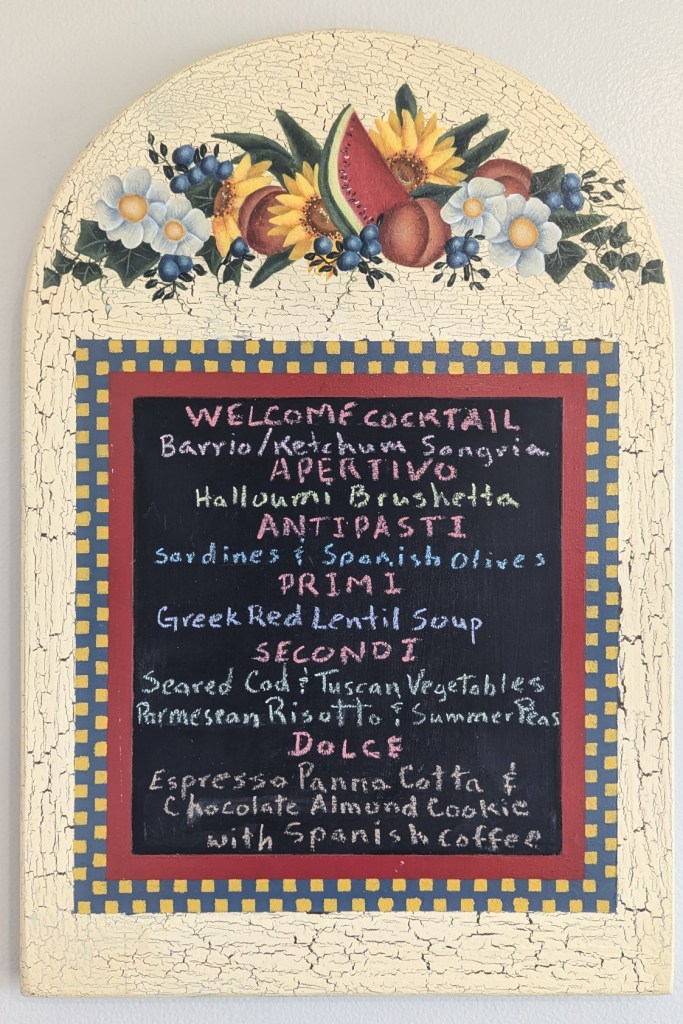 WELCOME COCKTAIL
Barrio/Ketchum Sangria
APERTIVO
Halloumi Brushetta
ANTIPASTI
Sardines & Spanish Olives
PRIMI
Greek Red Lentil Soup
SECONDI
Seared Cod & Tuscan Vegetables
Parmesean Risotto & Summer Peas
DOLCE
Espresso Panna Cotta &
Chocolate Almond Cookie
with Spanish coffee